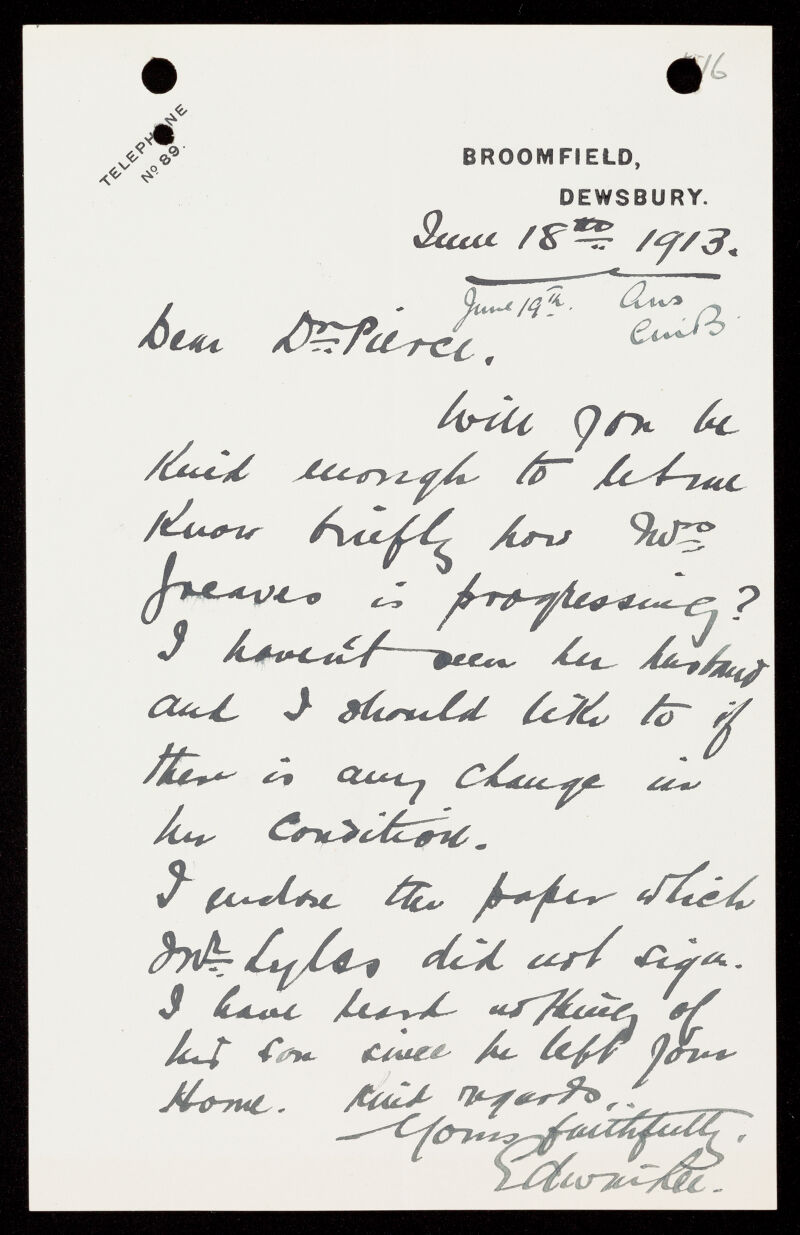 16
TELEPHONE
No 89.
BROOMFIELD,
DEWSBURY.
June 18th 1913.
June 19th. Ans
Dear Dr Pierce.
Will you be
Kind enough to let me
Know briefly how Mrs
Greaves is progressing?
I haven't seen her husband
and I should like to if
there is any change in
her condition.
I enclose the paper which
Mr Lyles did not sign.
I have heard nothing of
his son since he left your
Home. Kind regards,
Yours faithfully.
Edwin Lee.